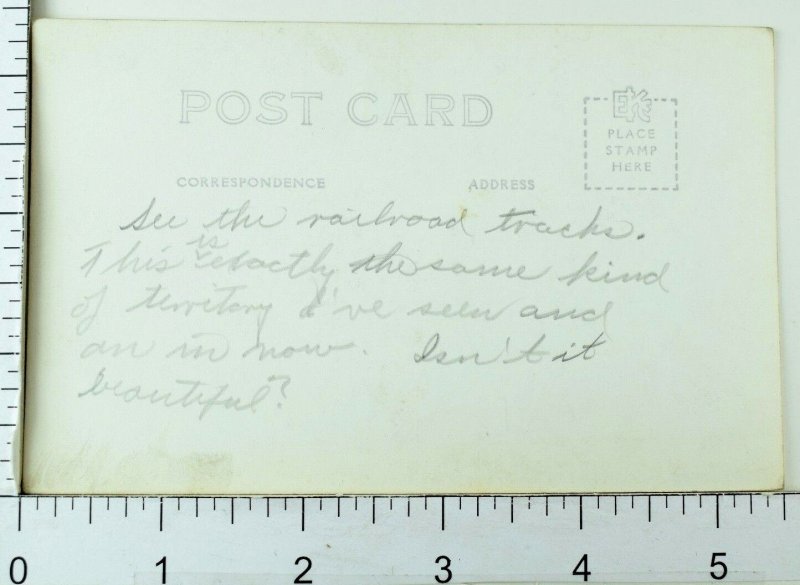 POST CARD
EKC
PLACE
STAMP
HERE
CORRESPONDENCE ADDRESS
See the railroad tracks.
is
This exactly the same kind
of territory I've seen and
am in now. Isn't it
beautiful?
0 1 2 3 4 5